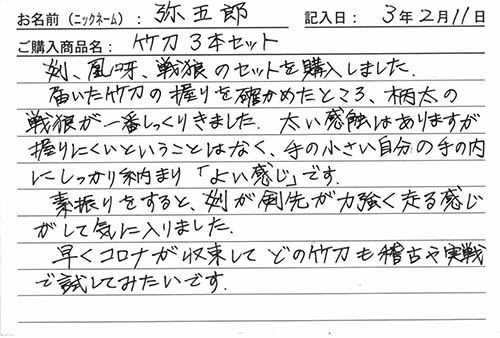 お名前（ニックネーム）： 弥五郎 記入日： 3年2月11日
ご購入商品名： 竹刀3本セット
剡、凰呀、戦狼のセットを購入しました。
届いた竹刀の握りを確かめたところ、柄太の
戦狼が一番しっくりきました。太い感触はありますが
握りにくいということはなく、手の小さい自分の手の内
にしっかり納まり「よい感じ」です。
素振りをすると、剡が剣先が力強く走る感じ
がして気に入りました。
早くコロナが収束してどの竹刀も稽古や実戦
で試してみたいです。